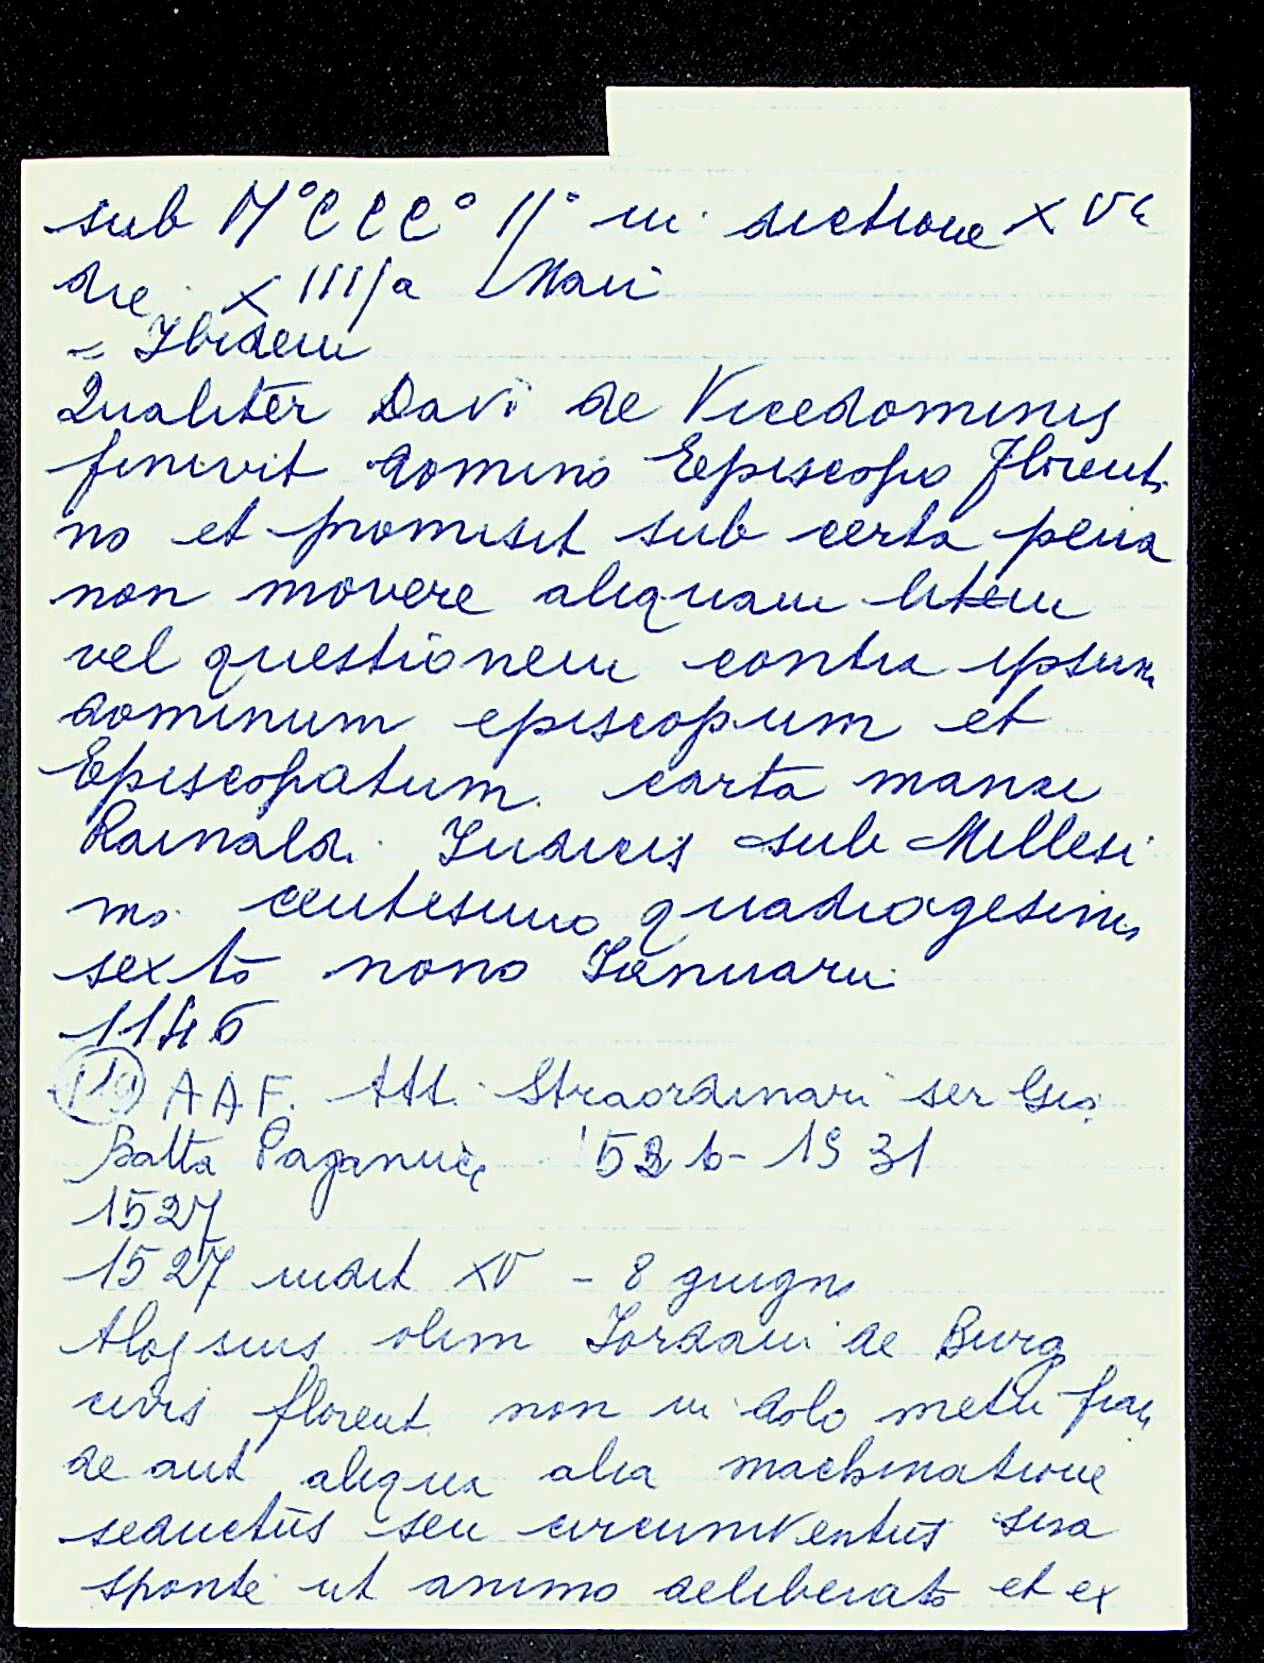 sub M°CCC° II° in dictione XVa
die XIIIa Maii
= Ibidem
Qualiter Davi de Vicedominis
finivit domino Episcopo Florenti
no et promisit sub certa pena
non movere aliquam litem
vel questionem contra ipsum
dominum episcopum et
Episcopatum. carta manu
Rainaldi Iudicis sub Millesi
mo centesimo quadragesimo
sexto nono Ianuarii
1146
A A F. Att. Straordinari ser Gio.
Batta Paganucci 1526-1531
1527
1527 indict XV - 8 giugno
Aloysius olim Iordani de Burg
civis florent. non in dolo metu frau
de aut aliqua alia machinatione
seductus seu circumventus sua
sponte ut animo deliberato et ex